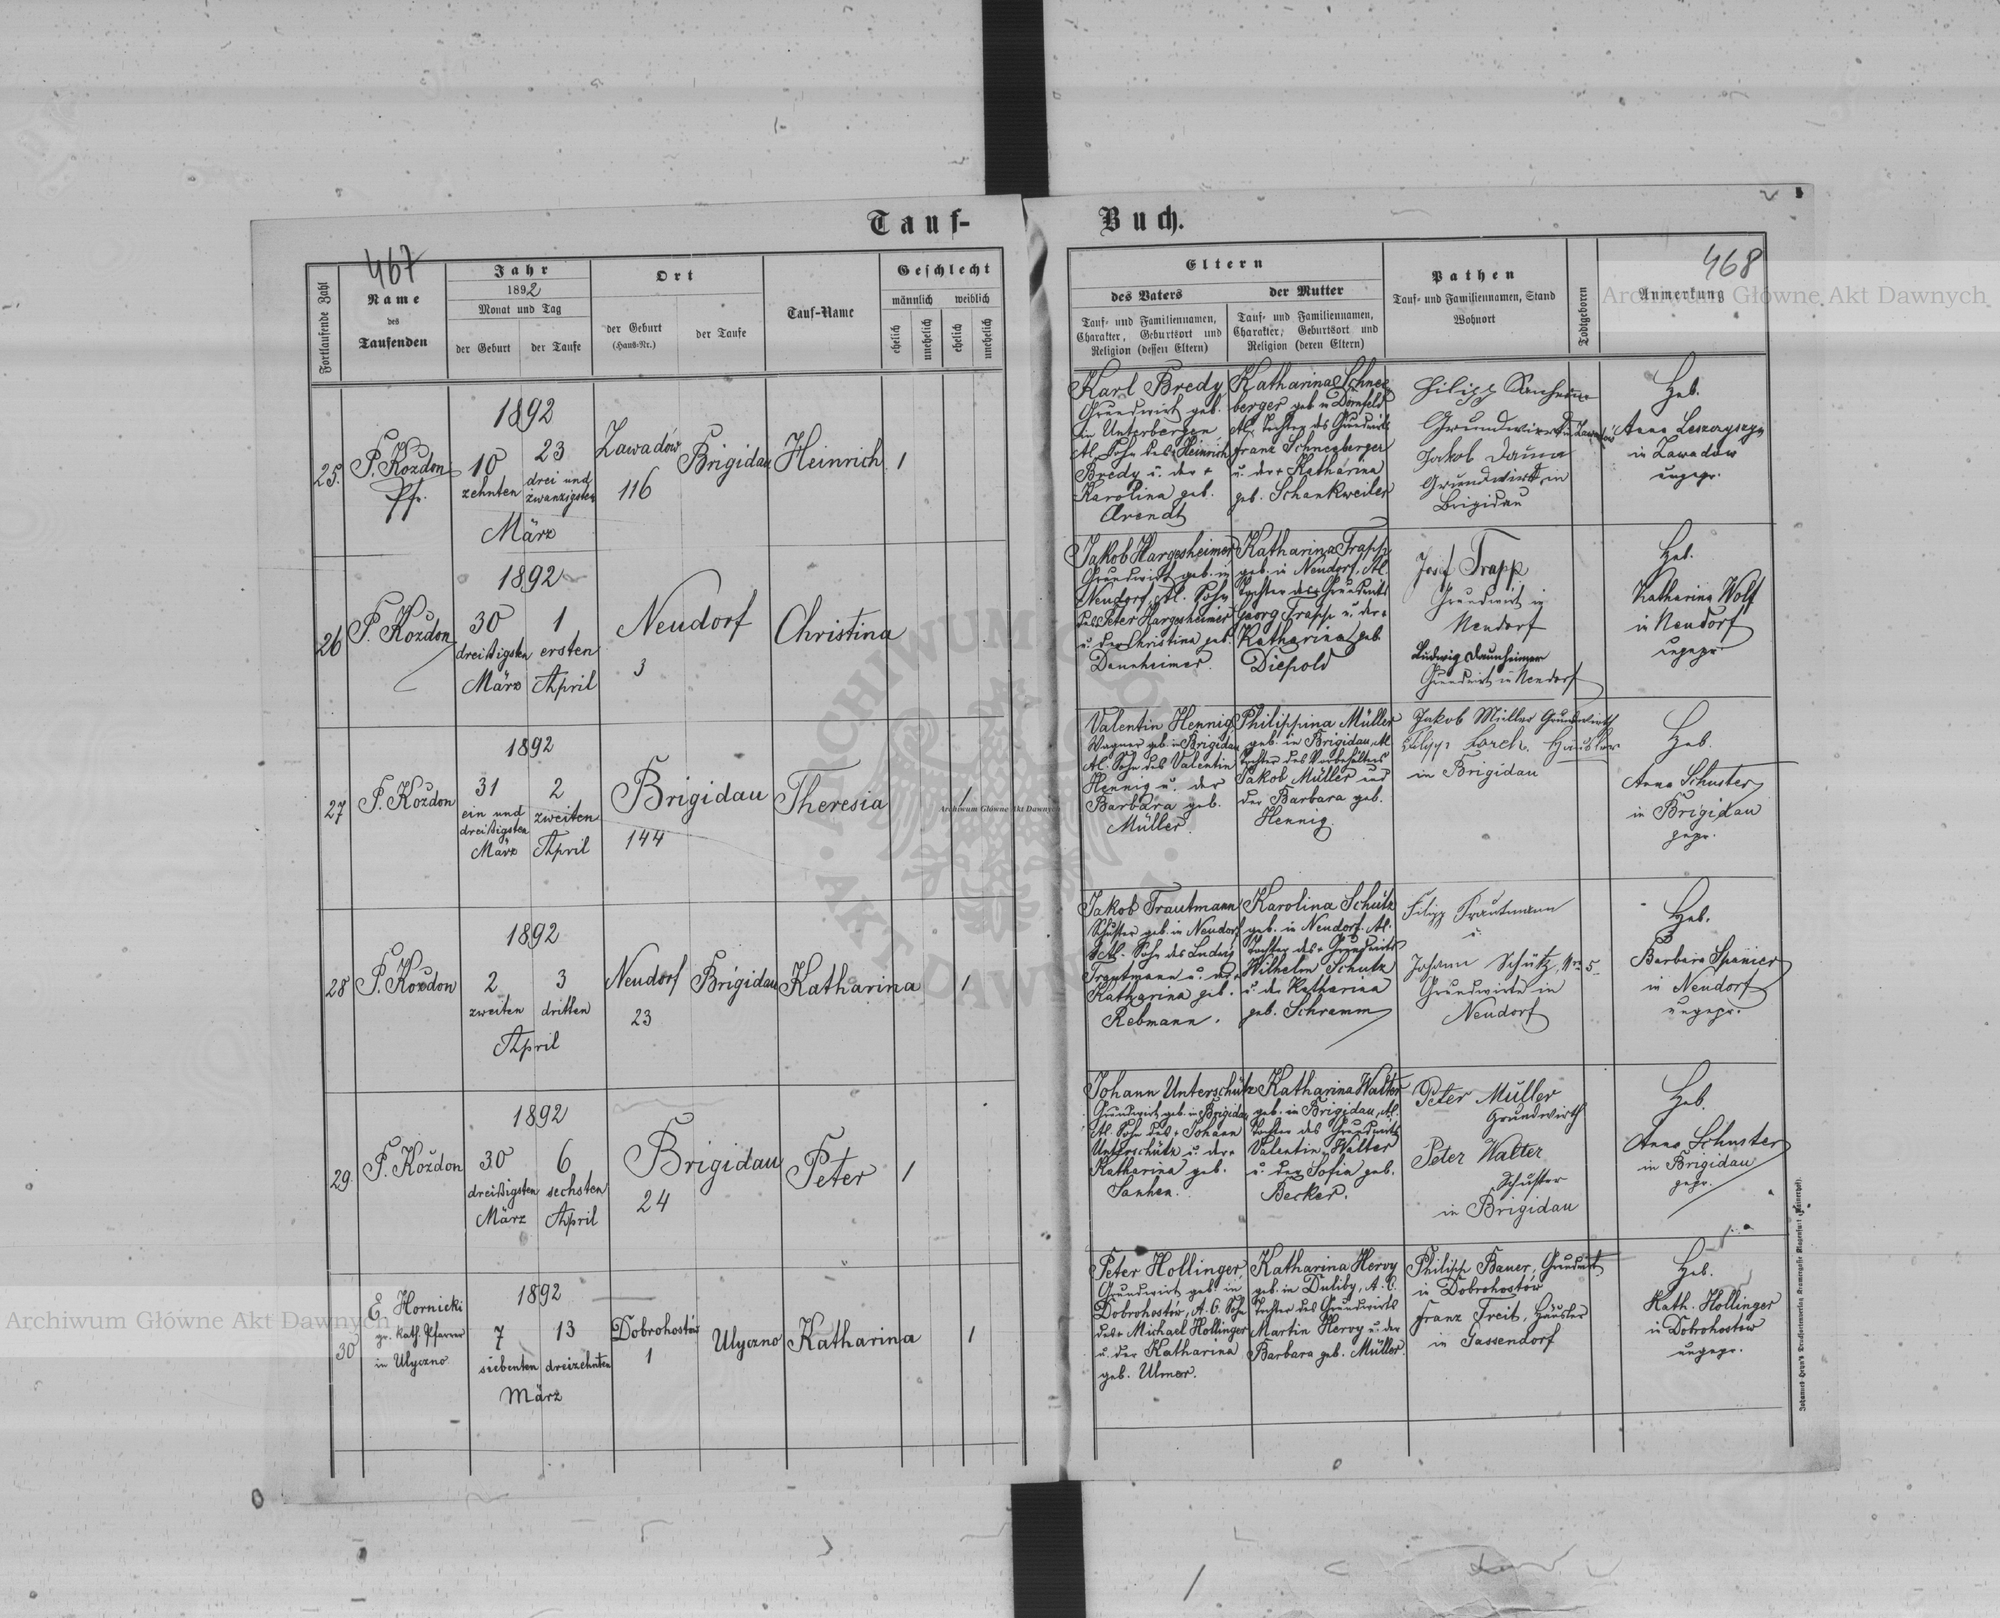 Tauf-
Buch.
467
468
Fortlaufende Zahl
Name
des
Taufenden
Jahr
1892
Monat und Tag
der Geburt
der Taufe
Ort
der Geburt
(Haus-Nr.)
der Taufe
Tauf-Name
Geschlecht
männlich
weiblich
ehelich
unehelich
ehelich
unehelich
Eltern
des Vaters
Tauf- und Familiennamen,
Charakter, Geburtsort und
Religion (dessen Eltern)
der Mutter
Tauf- und Familiennamen,
Charakter, Geburtsort und
Religion (deren Eltern)
Pathen
Tauf- und Familiennamen, Stand
Wohnort
Todtgeboren
Anmerkung
25.
P. Kozdon
Pfr.
1892
10
zehnten
23
drei und
zwanzigsten
März
Zawadów
116
Brigidau
Heinrich
1
Karl Bredy
Grundwirt geb.
in Unterbergen
Al. Sohn des Heinrich
Bredy u. der +
Karolina geb.
Arendt
Katharina Schnee-
berger geb in Dornfeld
Al. Tochter des Grundwirts
Franz Schneeberger
u. der + Katharina
geb. Schankweiler
Filipp
Grundwirt in Zawadów
Jakob Daum
Grundwirt in
Brigidau
Heb.
Anna
in Zawadów
ungepr.
26
P. Kozdon
1892
30
dreißigsten
März
1
ersten
April
Neudorf
3
Christina
Jakob Hargesheimer
Grundwirt geb. in
Neudorf, Al. Sohn
des Peter Hargesheimer
u. der Christina geb.
Dennheimer.
Katharina Trapp
geb. in Neudorf, Al.
Tochter des Grundwirts
Georg Trapp u. der +
Katharina geb
Diepold
Josef Trapp
Grundwirt in
Neudorf
Ludwig Daunheimer
Grundwirt in Neudorf
Heb.
Katharina Wolf
in Neudorf
ungepr.
27
P. Kozdon
1892
31
ein und
dreißigsten
März
2
zweiten
April
Brigidau
144
Theresia
1
Valentin Hennig,
Wagner geb. in Brigidau
Al. Sohn des Valentin
Hennig u. der
Barbara geb.
Müller.
Philippina Müller
geb. in Brigidau, Al.
Tochter des
Jakob Müller und
der Barbara geb.
Hennig.
Jakob Müller Grundwirth
Filipp Lorch, Häusler
in Brigidau
Heb.
Anna Schuster
in Brigidau
gepr.
28
P. Kozdon
1892
2
zweiten
3
dritten
April
Neudorf
23
Brigidau
Katharina
1
Jakob Trautmann
Schuster geb. in Neudorf
Al. Sohn des Ludwig
Trautmann u. der +
Katharina geb.
Rebmann.
Karolina Schütz
geb. in Neudorf. Al.
Tochter des + Grundwirts
Wilhelm Schütz
u. der Katharina
geb. Schramm
Filipp Trautmann
u.
Johann Schütz, Nro 5
Grundwirte in
Neudorf
Heb.
Barbara Spanier
in Neudorf
ungepr.
29.
P. Kozdon
1892
30
dreißigsten
März
6
sechsten
April
Brigidau
24
Peter
1
Johann Unterschütz
Grundwirt geb. in Brigidau
Al. Sohn des + Johann
Unterschütz u. der +
Katharina geb.
Sanhen.
Katharina Walter
geb. in Brigidau, Al.
Tochter des Grundwirts
Valentin Walter
u. der Sofia geb.
Becker.
Peter Müller
Grundwirth
Peter Walter
Schuster
in Brigidau
Heb.
Anna Schuster
in Brigidau
gepr.
30
E. Hornicki
gr. kath. Pfarrer
in Ulyczno
1892
7
siebenten
13
dreizehnten
März
Dobrohostów
1
Ulyczno
Katharina
1
Peter Hollinger,
Grundwirt geb. in
Dobrohostów, A. C. Sohn
des + Michael Hollinger
u. der Katharina
geb. Ulmer.
Katharina Hervy
geb. in Duliby, A. C.
Tochter des Grundwirts
Martin Hervy u. der
Barbara geb. Müller.
Philipp Bauer, Grundwirt
in Dobrohostów
Franz Freit, Häusler
in Gassendorf
Heb.
Kath. Hollinger
in Dobrohostów
ungepr.
Archiwum Główne Akt Dawnych
Archiwum Główne Akt Dawnych
Archiwum Główne Akt Dawnych